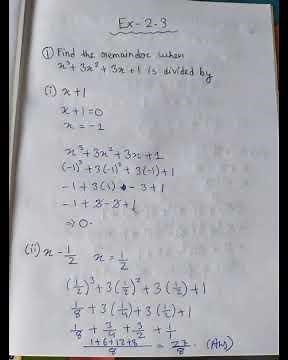 Ex-2.3
① Find the remainder when
x³+3x²+3x+1 is divided by
(i) x+1
x+1=0
x=-1
x³+3x²+3x+1
(-1)³+3(-1)²+3(-1)+1
-1+3(1)-3+1
-1+3-3+1
⇒0
(ii) x-1/2 x=1/2
(1/2)³+3(1/2)²+3(1/2)+1
1/8+3(1/4)+3(1/2)+1
1/8+3/4+3/2+1/1
1+6+12+8/8=27/8 (Ans)